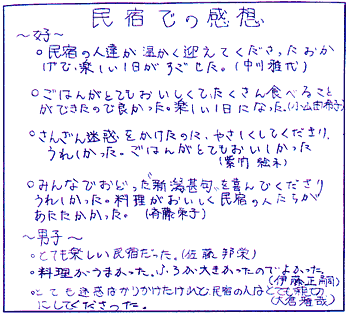 民宿での感想
〜女子〜
○民宿の人達が温かく迎えてくださったおか
げで、楽しい1日がすごせた。(中川雅代)
○ごはんがとてもおいしくて、たくさん食べること
ができたので良かった。楽しい1日になった。(小山田
○さんざん迷惑をかけたのに、やさしくしてくださり、
うれしかった。ごはんがとてもおいしかった
(紫竹 絵
○みんなでおどった"新潟甚句"を喜んでくださり
うれしかった。料理がおいしく民宿の人たちが
あたたかかった。(斉藤 栄子)
〜男子〜
○とても楽しい民宿だった。(佐藤 邦栄)
○料理がうまかった。ふろが大きかったのでよかった。
(伊藤正嗣)
○とても迷惑ばかりかけたけれど民宿の人はとても親切
にしてくださった。(大倉 哉)